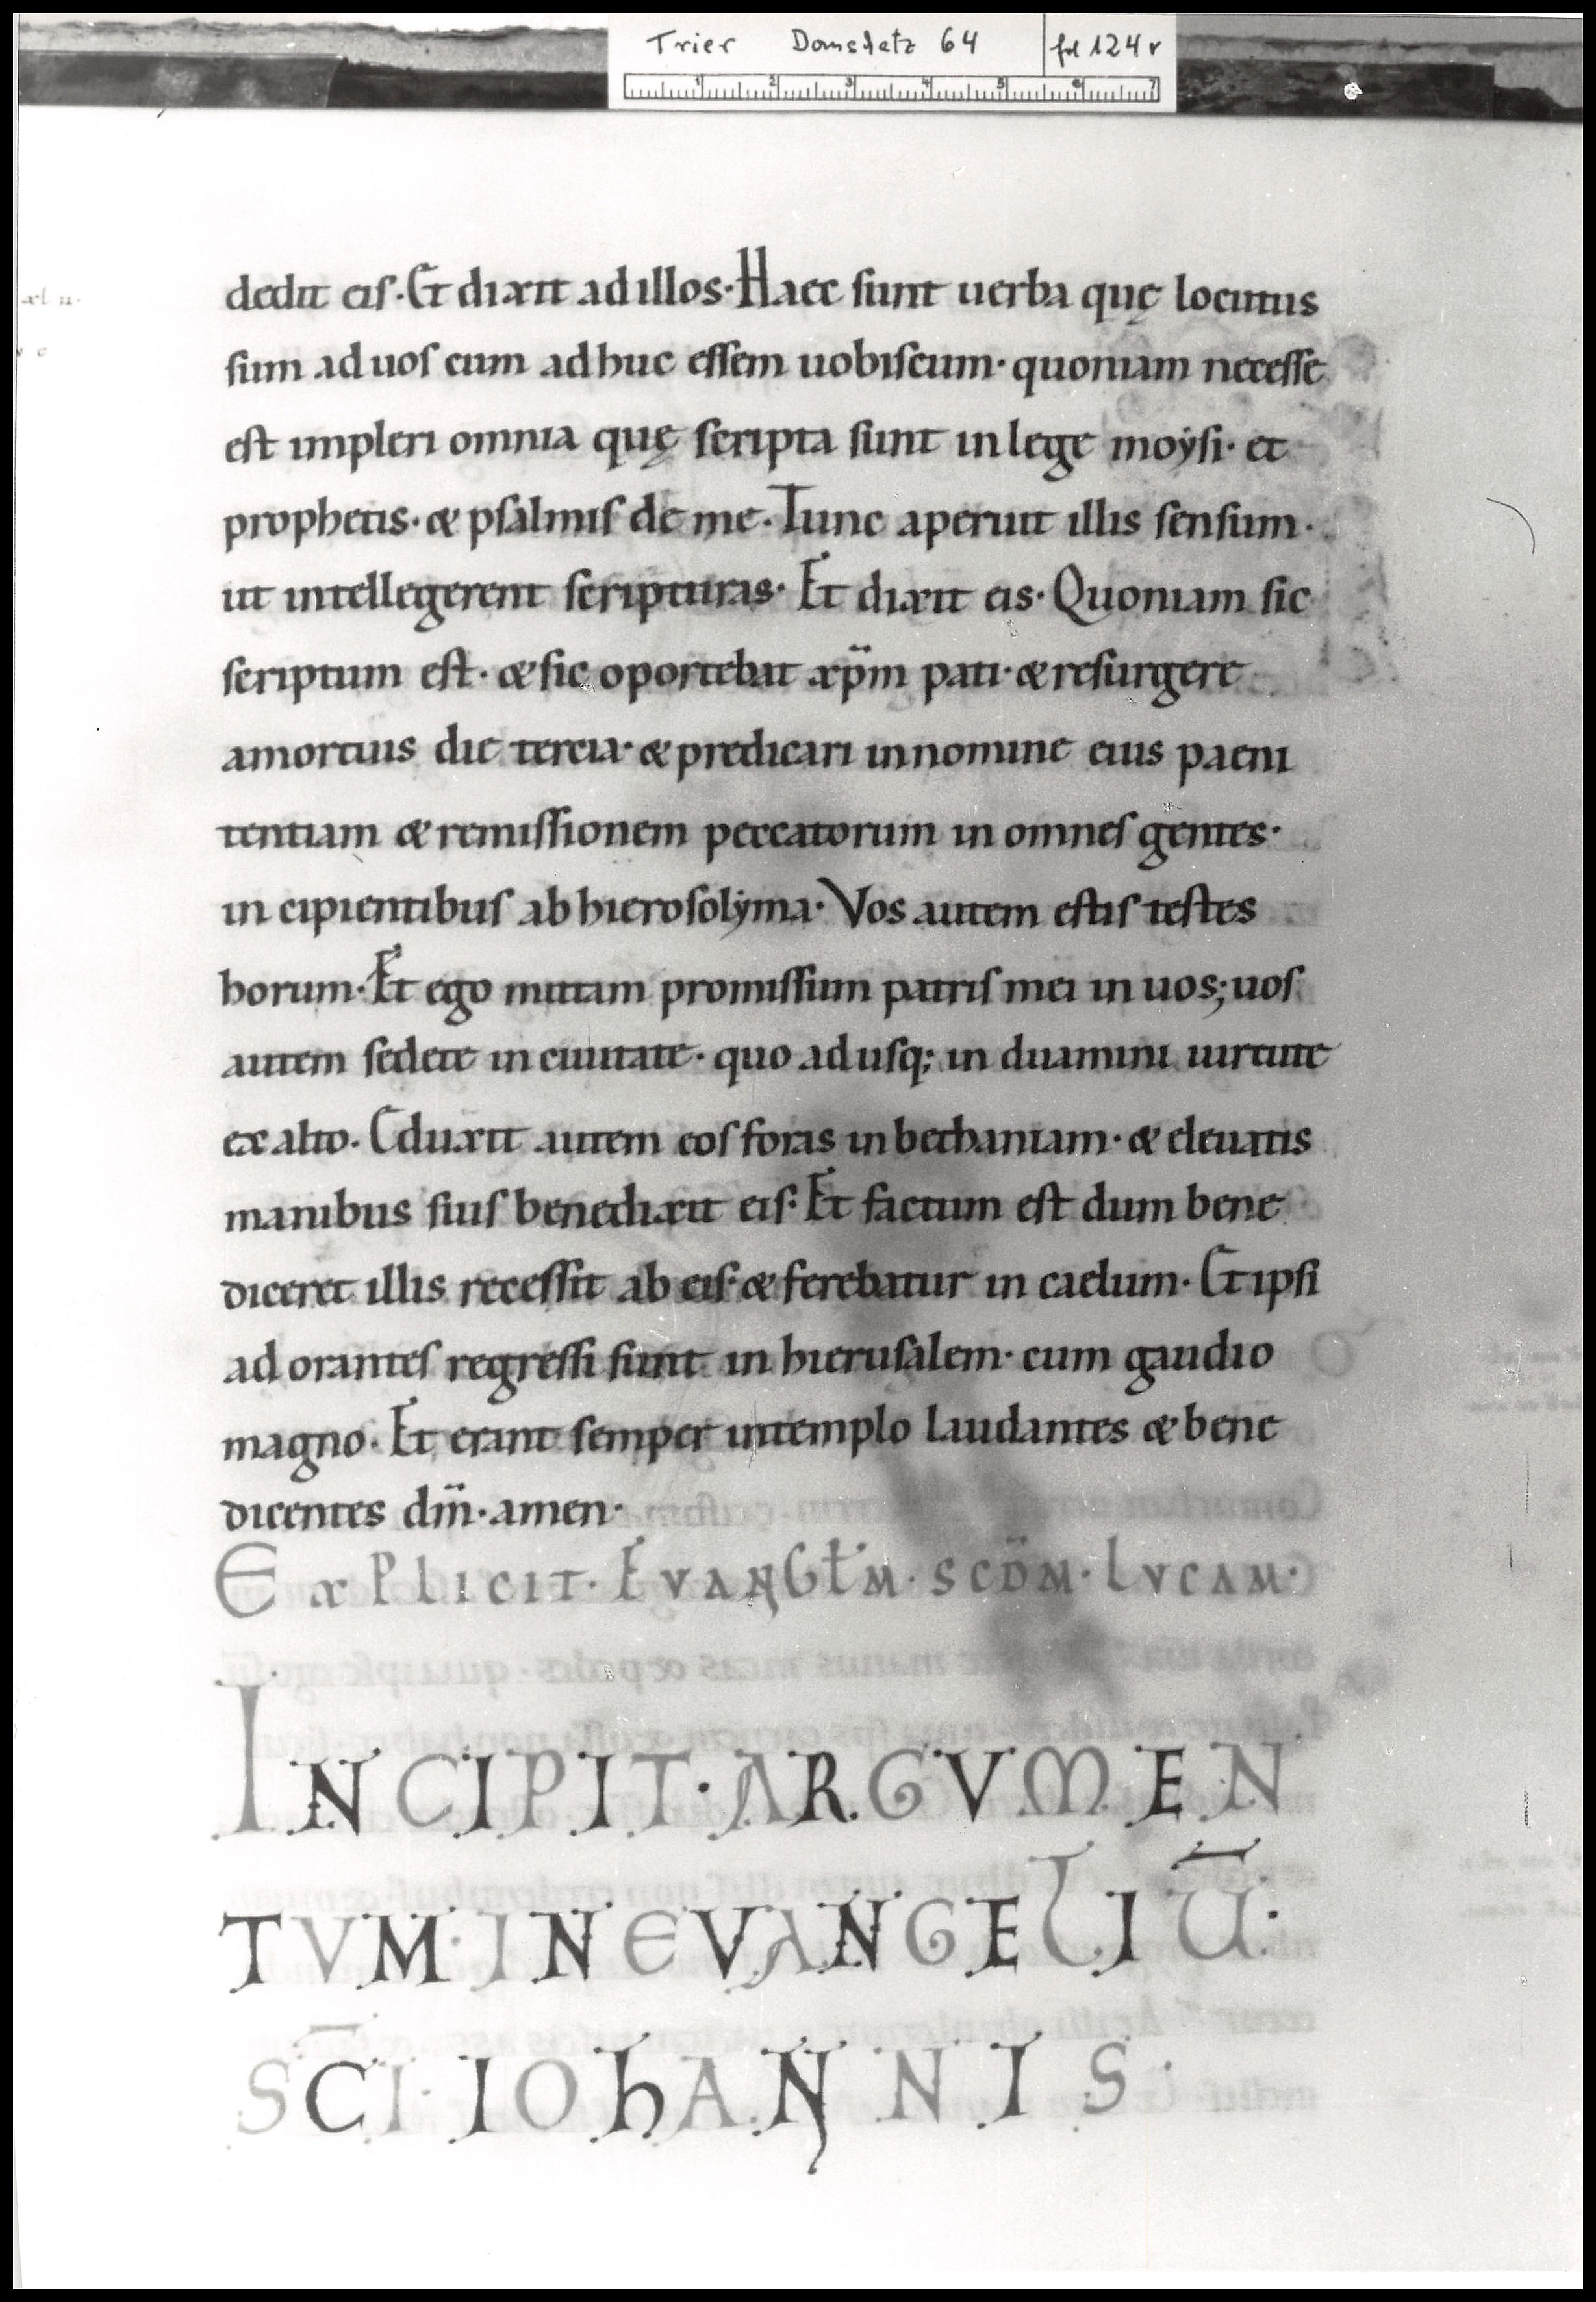 Trier Domschatz 64 fol 124v
1 2 3 4 5 6 7
dedit eis. Et dixit ad illos. Haec sunt uerba quę locutus
sum ad uos cum adhuc essem uobiscum. quoniam necesse
est impleri omnia quę scripta sunt in lege moẏsi. et
prophetis. & psalmis de me. Tunc aperuit illis sensum.
ut intellegerent scripturas. Et dixit eis. Quoniam sic
scriptum est. & sic oportebat xp̄m pati. & resurgere
amortuis die tercia. & predicari innomine eius paeni
tentiam & remissionem peccatorum in omnes gentes.
in cipientibus ab hierosolẏma. Vos autem estis testes
horum. Et ego mittam promissum patris mei in uos; uos
autem sedete in ciuitate. quo ad usq; in duamini uirtute
ex alto. Eduxit autem eos foras in bethaniam. & eleuatis
manibus suis benedixit eis. Et factum est dum bene
diceret illis recessit ab eis. & ferebatur in caelum. Et ipsi
ad orantes regressi sunt in hierusalem. cum gaudio
magno. Et erant semper intemplo laudantes & bene
dicentes dm̄. amen.
ExPLICIT. EVANGŁM. SCD̄M. LVCAM.
INCIPIT. ARGVMEN
TVM. IN EVANGELIŪ.
SC̄I. IOhANNIS.